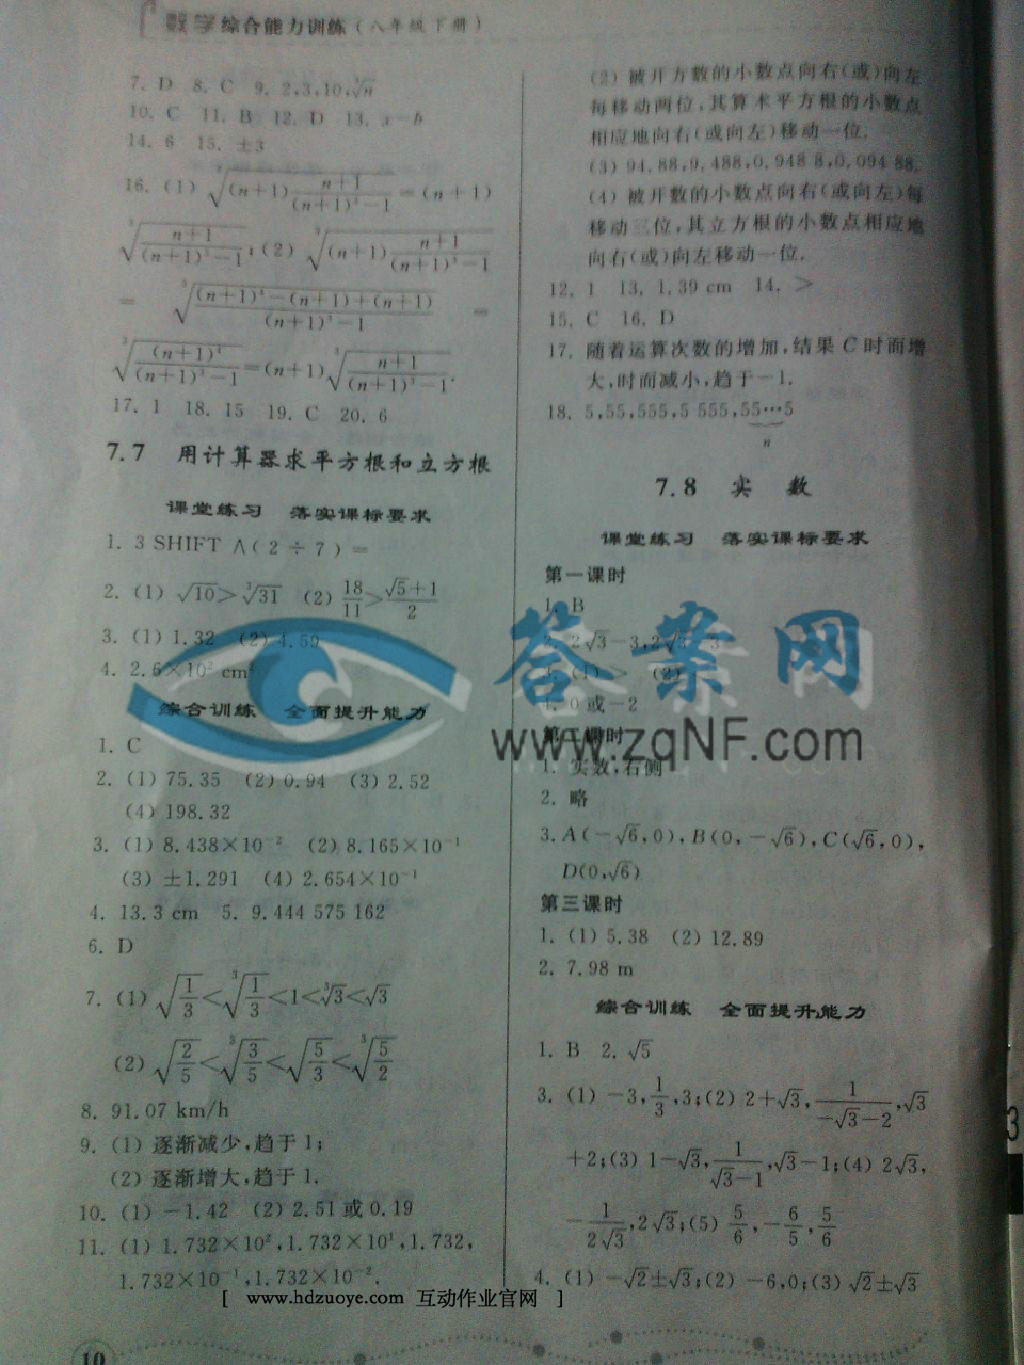 数学 综合能力训练(八年级下册)
7. D 8. C 9. 2,3,10,
10. C 11. B 12. D 13.
14. 6 15. ±3
16. (1) √((n+1)(n+1)/((n+1)²-1))=(n+1)
17. 1 18. 15 19. C 20. 6
7.7 用计算器求平方根和立方根
课堂练习 落实课标要求
1. 3 SHIFT ∧(2÷7)=
2. (1) √10>∛31 (2) 18/11>(√5+1)/2
3. (1) 1.32 (2) 4.59
4. 2.5×10² cm²
综合训练 全面提升能力
1. C
2. (1) 75.35 (2) 0.94 (3) 2.52
(4) 198.32
3. (1) 8.438×10⁻² (2) 8.165×10⁻¹
(3) ±1.291 (4) 2.654×10⁻¹
4. 13.3 cm 5. 9.444 575 162
6. D
7. (1) √(1/3)<∛(1/3)<1<∛3<√3
(2) √(2/5)<∛(3/5)<√(5/3)<∛(5/2)
8. 91.07 km/h
9. (1) 逐渐减少,趋于1;
(2) 逐渐增大,趋于1.
10. (1) -1.42 (2) 2.51或0.19
11. (1) 1.732×10²,1.732×10¹,1.732,
1.732×10⁻¹,1.732×10⁻².
(2) 被开方数的小数点向右(或)向左
每移动两位,其算术平方根的小数点
相应地向右(或向左)移动一位.
(3) 94.88,9.488,0.948 8,0.094 88.
(4) 被开数的小数点向右(或向左)每
移动三位,其立方根的小数点相应地
向右(或)向左移动一位.
12. 1 13. 1.39 cm 14. >
15. C 16. D
17. 随着运算次数的增加,结果C时而增
大,时而减小,趋于-1.
18. 5,55,555,5 555,55…5
n
7.8 实 数
课堂练习 落实课标要求
第一课时
1. B
2√3-3,2√3-3
3. (1) > (2)
4. 0或-2
第二课时
1. 实数,右侧
2. 略
3. A(-√6,0),B(0,-√6),C(√6,0),
D(0,√6)
第三课时
1. (1) 5.38 (2) 12.89
2. 7.98 m
综合训练 全面提升能力
1. B 2. √5
3. (1) -3,1/3,3;(2) 2+√3,1/(-√3-2),√3
+2;(3) 1-√3,1/(√3-1),√3-1;(4) 2√3,
-1/(2√3),2√3;(5) 5/6,-6/5,5/6
4. (1) -√2±√3;(2) -6,0;(3) √2±√3
答案网
www.zqNF.com
[ www.hdzuoye.com 互动作业官网 ]
10
3